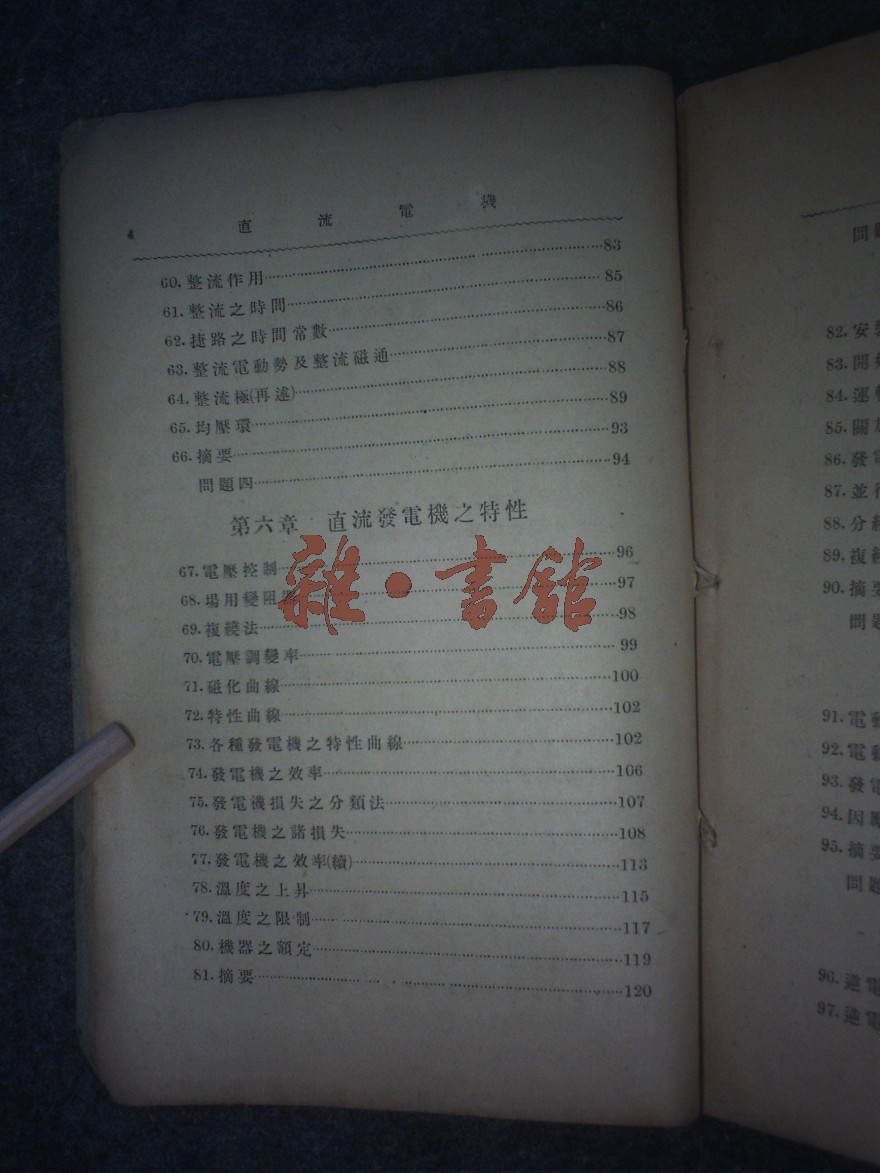 4 直流電機
60. 整流作用 83
61. 整流之時間 85
62. 捷路之時間常數 86
63. 整流電動勢及整流磁通 87
64. 整流極(再述) 88
65. 均壓環 89
66. 摘要 93
問題四 94
第六章 直流發電機之特性
67. 電壓控制 96
68. 場用變阻器 97
69. 複繞法 98
70. 電壓調變率 99
71. 磁化曲線 100
72. 特性曲線 102
73. 各種發電機之特性曲線 102
74. 發電機之效率 106
75. 發電機損失之分類法 107
76. 發電機之諸損失 108
77. 發電機之效率(續) 113
78. 溫度之上昇 115
79. 溫度之限制 117
80. 機器之額定 119
81. 摘要 120
雜·書館
問
82. 安
83. 開
84. 運
85. 關
86. 發電
87. 並行
88. 分
89. 複
90. 摘要
問題
91. 電動
92. 電動
93. 發電
94. 因
95. 摘要
問題
96. 電
97. 電